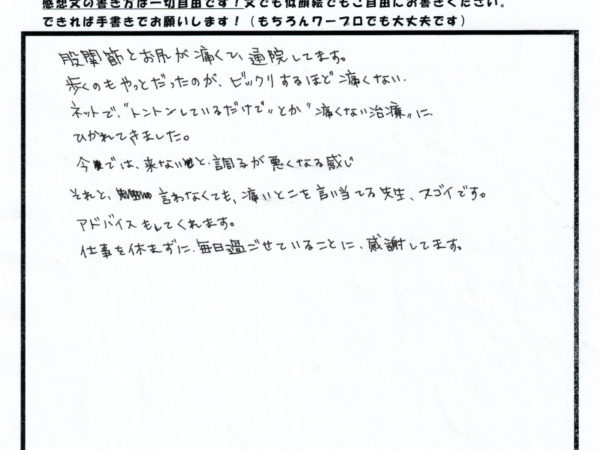 感想文の書き方は一切自由です!文でも似顔絵でもご自由にお書きください。
できれば手書きでお願いします!(もちろんワープロでも大丈夫です)
股関節とお尻が痛くて、通院してます。
歩くのもやっとだったのが、ビックリするほど痛くない.
ネットで、"トントンしているだけで"とか"痛くない治療"に
ひかれてきました。
今では、来ないと調子が悪くなる感じ
それと、言わなくても、痛いとこを言い当てる先生、スゴイです。
アドバイスもしてくれます。
仕事を休まずに、毎日過ごせていることに、感謝してます。